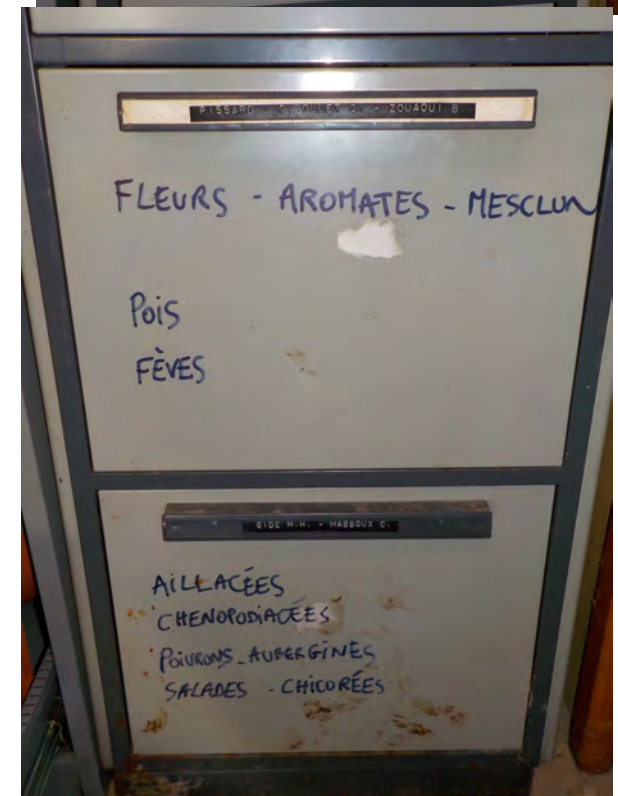 PISSARD - ZOUAOUI B.
FLEURS - AROMATES - MESCLUN
Pois
FÈVES
GIDE M.M. - MABBOUX C.
AILLACÉES
CHENOPODIACÉES
POIVRONS - AUBERGINES
SALADES - CHICORÉES